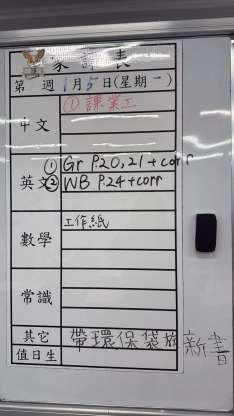 家課表
第 週 1月5日(星期一)
中文 ①課業工
英文 ① Gr P.20,21+corr
② WB P.24+corr
數學 工作紙
常識
其它 帶環保袋放新書
值日生